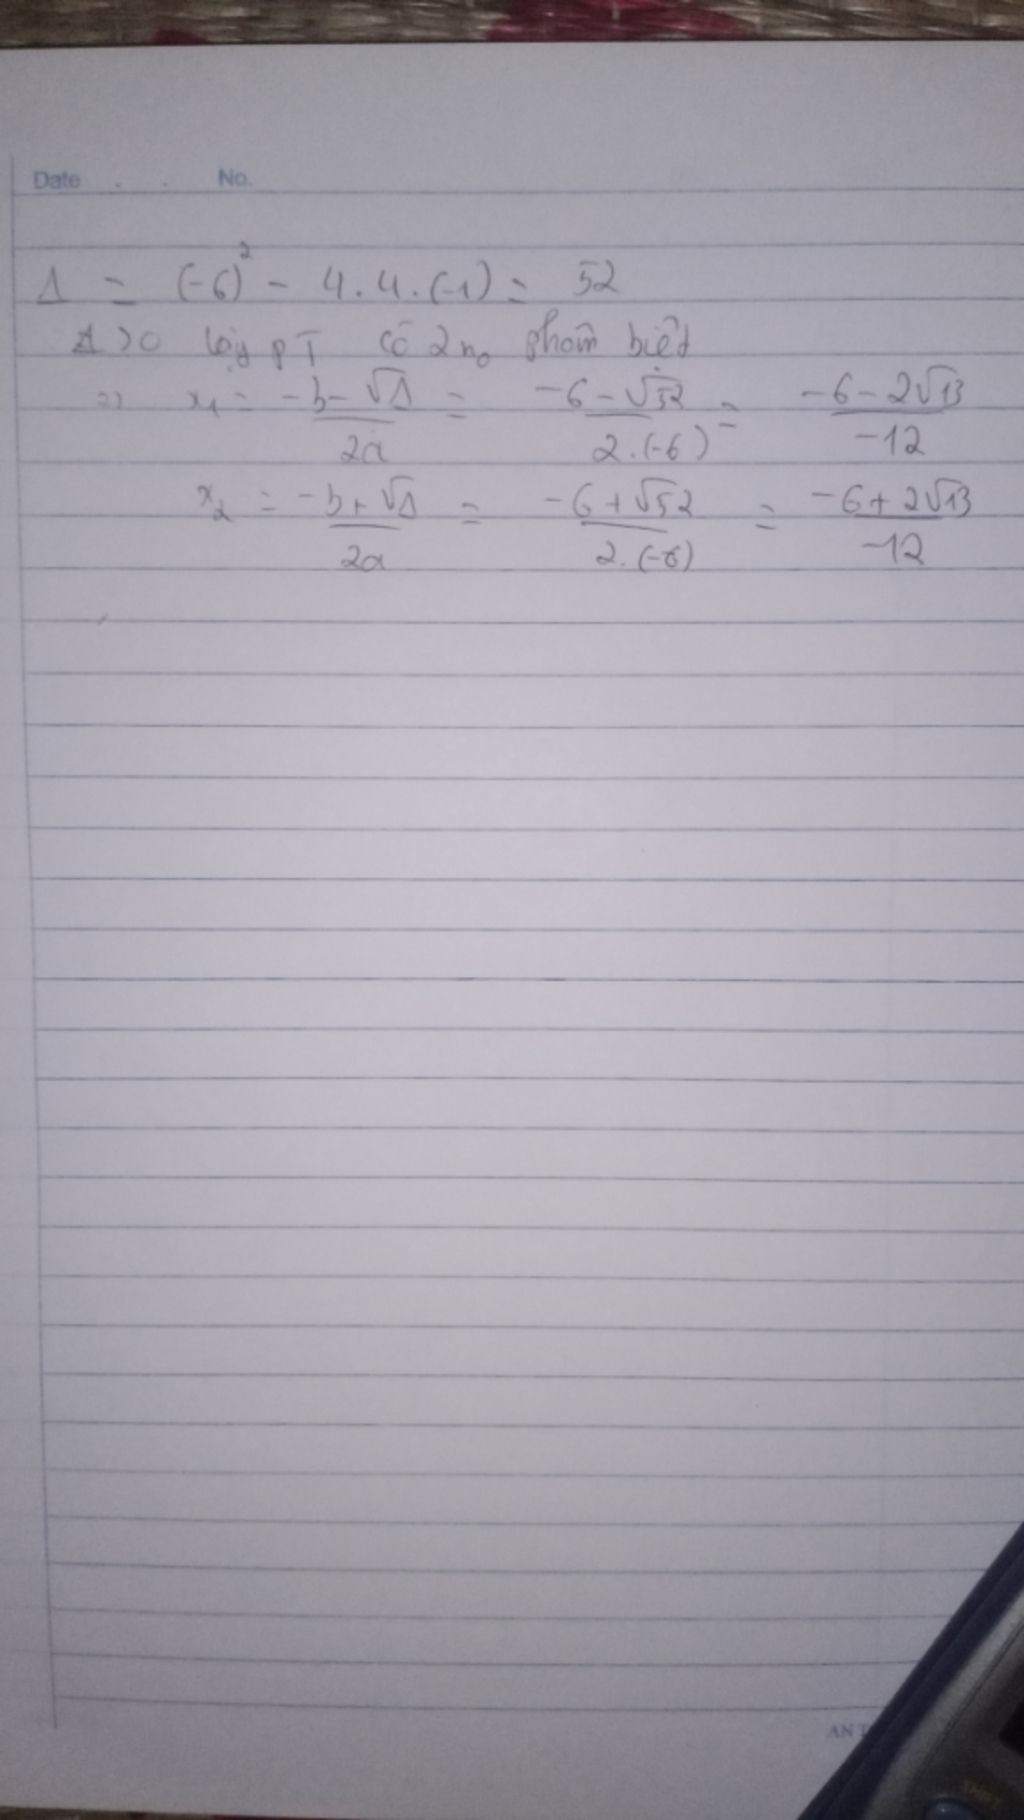 Date No.
Δ = (-6)² - 4.4.(-1) = 52
Δ > 0 pT có 2 no phân biệt
=> x₁ = -b-√Δ / 2a = -6-√52 / 2.(-6) = -6-2√13 / -12
x₂ = -b+√Δ / 2a = -6+√52 / 2.(-6) = -6+2√13 / -12